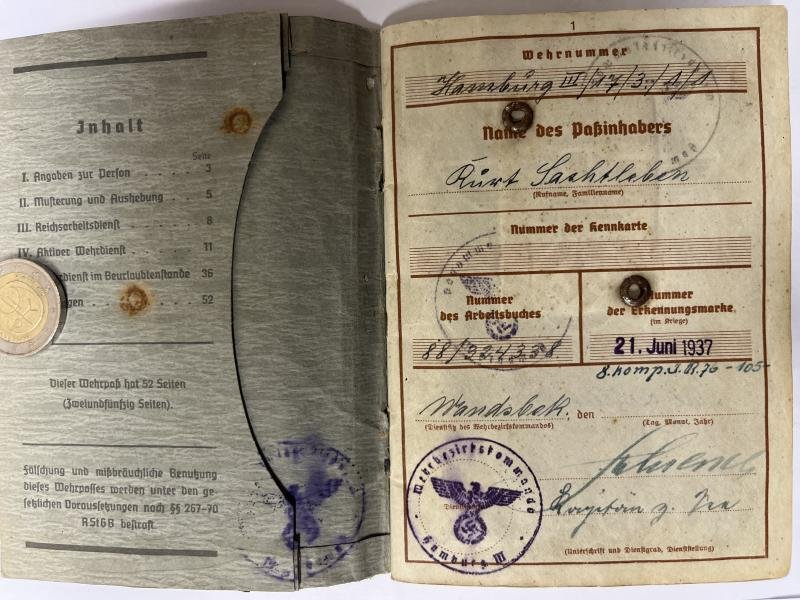 Inhalt
Seite
I. Angaben zur Person . . . . . 3
II. Musterung und Aushebung . . . 5
III. Reichsarbeitsdienst . . . . . 8
IV. Aktiver Wehrdienst . . . . . 11
dienst im Beurlaubtenstande 36
gen . . . . . 52
Dieser Wehrpaß hat 52 Seiten
(Zweiundfünfzig Seiten).
Fälschung und mißbräuchliche Benutzung
dieses Wehrpasses werden unter den ge-
setzlichen Voraussetzungen nach §§ 267-70
RStGB bestraft.
1
Wehrnummer
Hamburg III/17/3/1/1
Name des Paßinhabers
Kurt Sachtleben
(Rufname, Familienname)
Nummer der Kennkarte
Nummer
des Arbeitsbuches
88/224358
Nummer
der Erkennungsmarke
(im Kriege)
21. Juni 1937
8. Komp. J.R. 76 - 105 -
Wandsbek, den
(Dienstsitz des Wehrbezirkskommandos)
(Tag, Monat, Jahr)
Wehrbezirkskommando
Hamburg III
Kapitän z. See
(Unterschrift und Dienstgrad, Dienststellung)